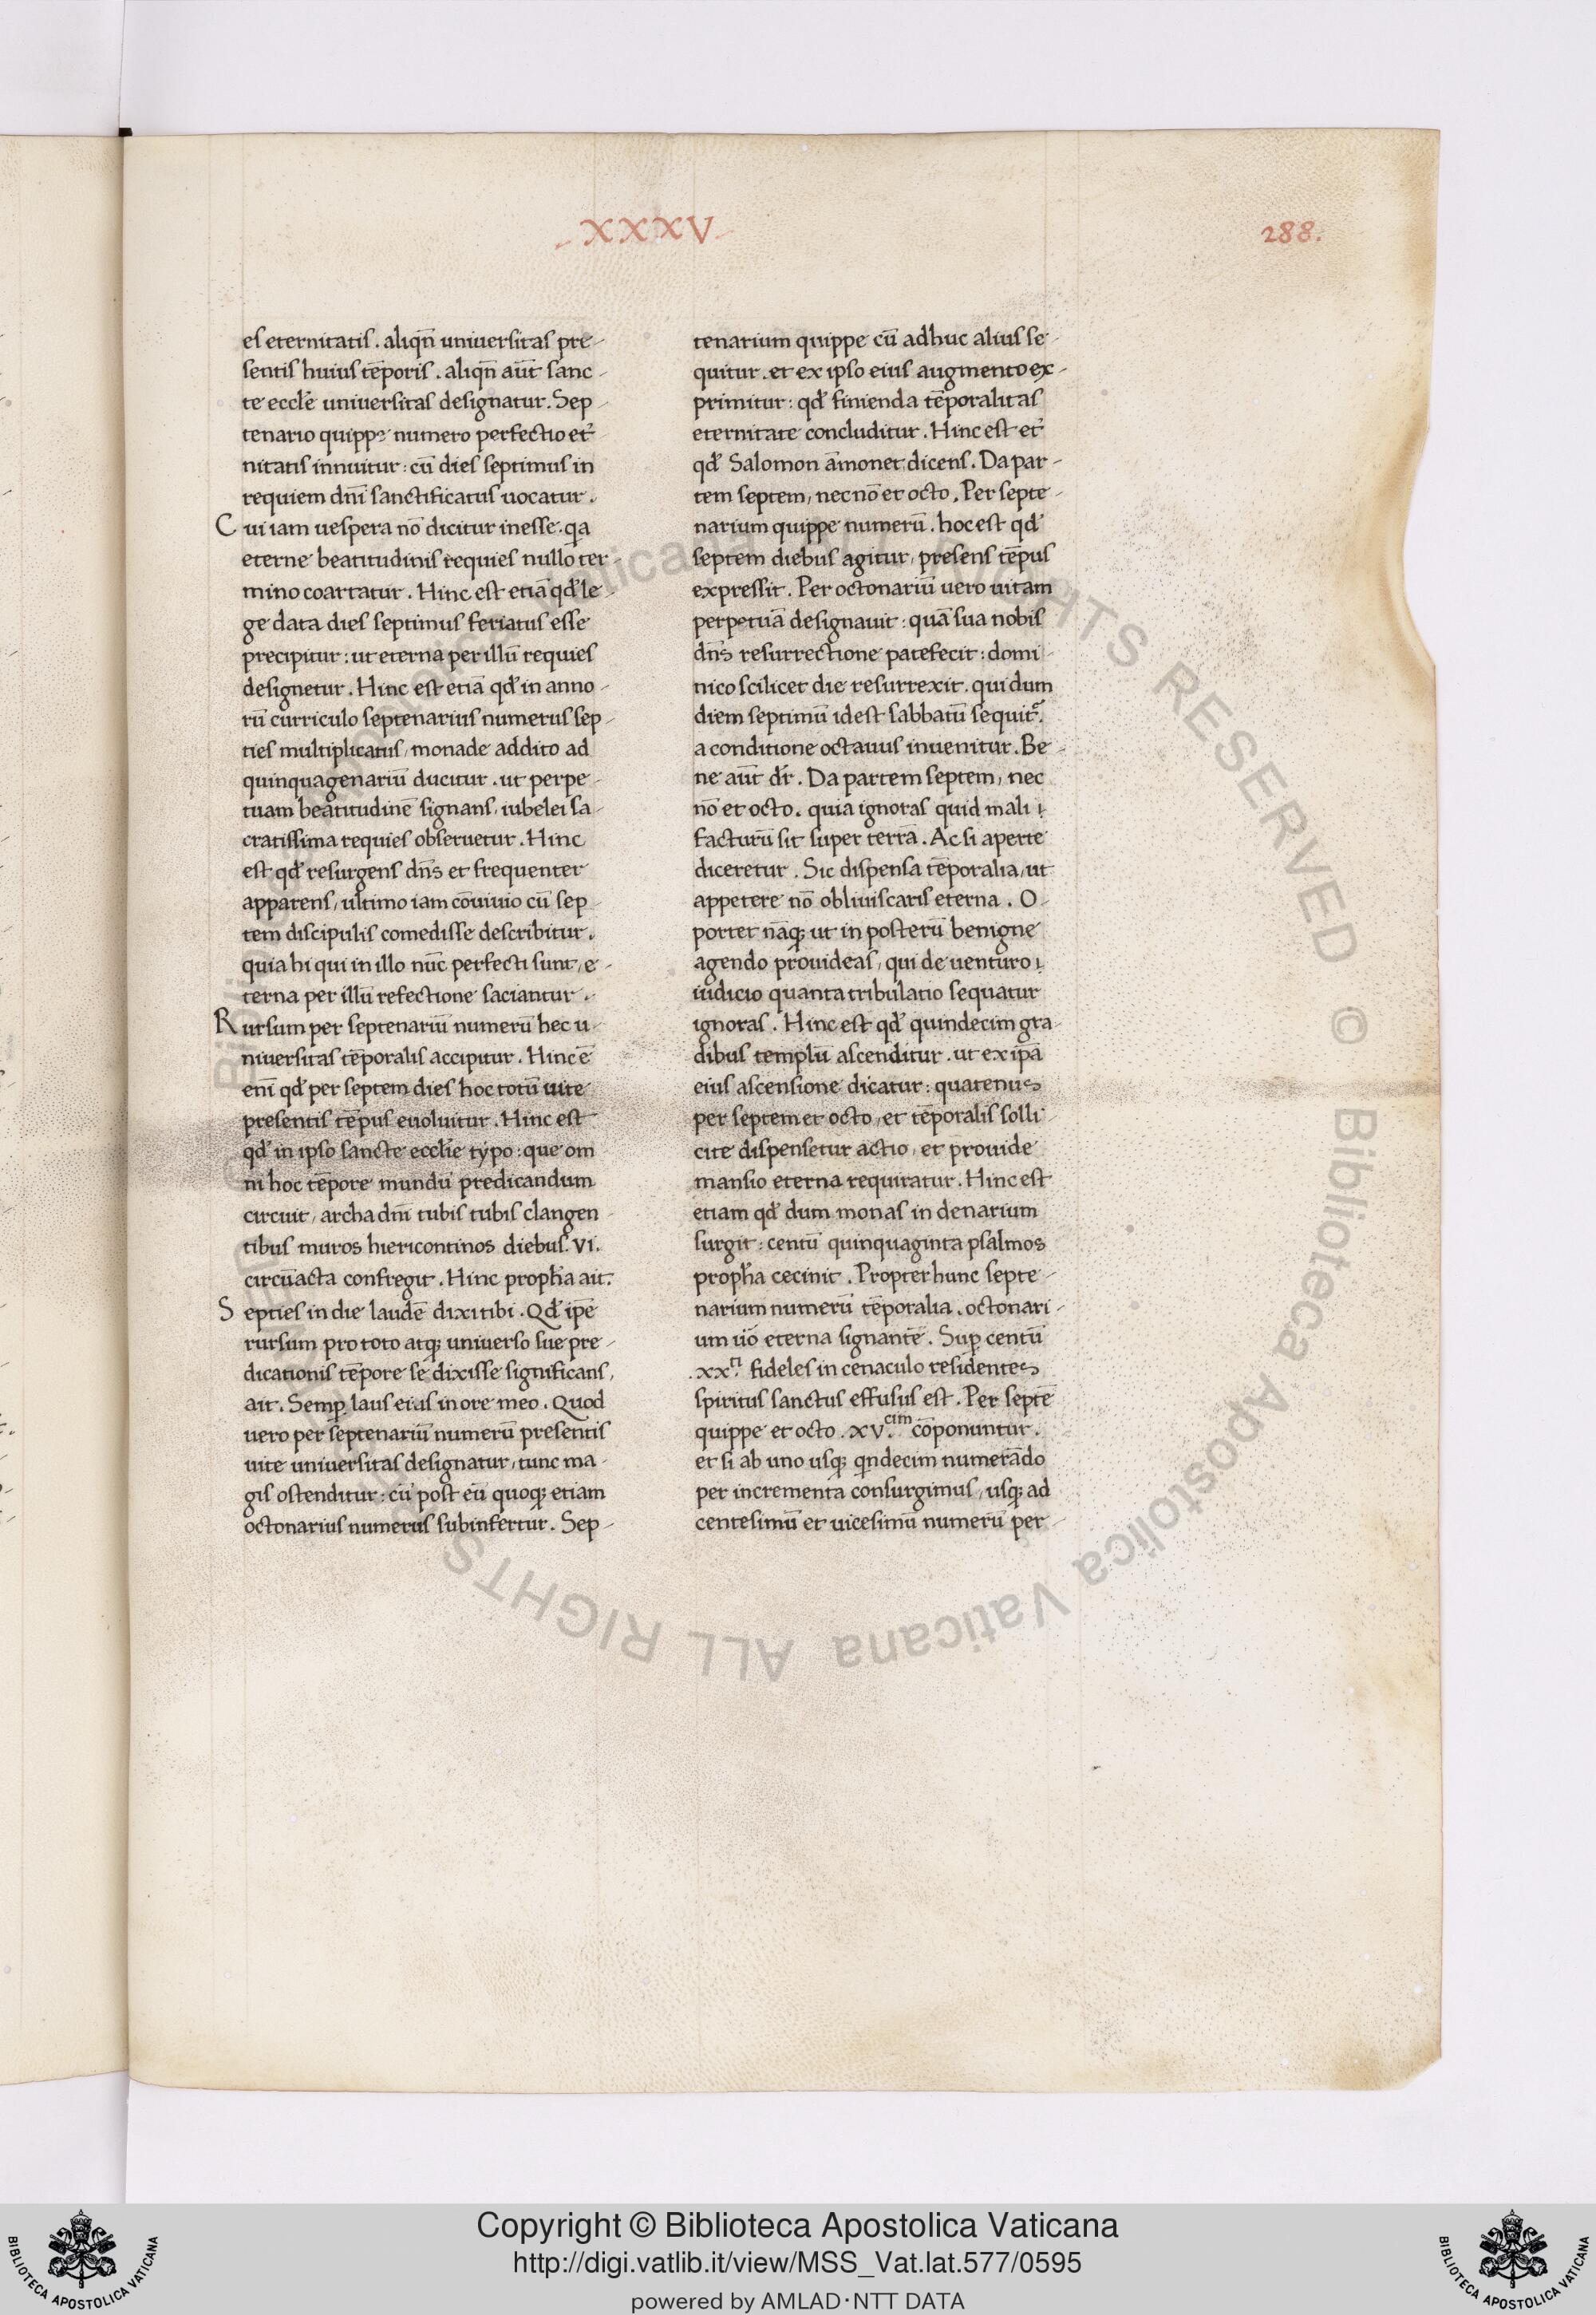 XXXV
288.
es eternitatis. aliqñ uniuersitas pre-
sentis huius tēporis. aliqñ aūt sanc-
te eccłe uniuersitas designatur. Sep-
tenario quippe numero perfectio et̉-
nitatis innuitur: cū dies septimus in
requiem dn̄i sanctificatus uocatur.
Cui iam uespera nō dicitur inesse. qa
eterne beatitudinis requies nullo ter-
mino coartatur. Hinc est etiā qđ le-
ge data dies septimus feriatus esse
precipitur: ut eterna per illū requies
designetur. Hinc est etiā qđ in anno-
rū curriculo septenarius numerus sep-
ties multiplicatus, monade addito ad
quinquagenariū ducitur. ut perpe-
tuam beatitudinē signans, iubelei sa-
cratissima requies obseruetur. Hinc
est qđ resurgens dn̄s et frequenter
apparens, ultimo iam cōuiuio cū sep-
tem discipulis comedisse describitur.
quia hi qui in illo nūc perfecti sunt, e-
terna per illū refectione saciantur.
Rursum per septenariū numerū hec u-
niuersitas tēporalis accipitur. Hinc ē
enī qđ per septem dies hoc totū uite
presentis tēpus euoluitur. Hinc est
qđ in ipso sancte eccłie typo: que om-
ni hoc tēpore mundū predicandum
circuit, archa dn̄i tubis tubis clangen-
tibus muros hiericontinos diebus. VI.
circūacta confregit. Hinc propħa ait.
Septies in die laudē dixi tibi. Qđ ip̄e
rursum pro toto atq; uniuerso sue pre-
dicationis tēpore se dixisse significans,
ait. Semꝑ laus eius in ore meo. Quod
uero per septenariū numerū presentis
uite uniuersitas designatur, tunc ma-
gis ostenditur: cū post eū quoq; etiam
octonarius numerus subinfertur. Sep-
tenarium quippe cū adhuc alius se-
quitur. et ex ipso eius augmento ex-
primitur: qđ finienda tēporalitas
eternitate concluditur. Hinc est et̉
qđ Salomon āmonet dicens. Da par-
tem septem, nec nō et octo. Per septe-
narium quippe numerū. hoc est qđ
septem diebus agitur, presens tēpus
expressit. Per octonariū uero uitam
perpetuā designauit: quā sua nobis
dn̄s resurrectione patefecit: domi-
nico scilicet die resurrexit. qui dum
diem septimū idest sabbatū sequit̉.
a conditione octauus inuenitur. Be-
ne aūt dr̄. Da partem septem, nec
nō et octo. quia ignoras quid mali
facturū sit super terrā. Ac si aperte
diceretur. Sic dispensa tēporalia, ut
appetere nō obliuiscaris eterna. O-
portet nāq; ut in posterū benigne
agendo prouideas, qui de uenturo
iudicio quanta tribulatio sequatur
ignoras. Hinc est qđ quindecim gra-
dibus templū ascenditur. ut ex ip̄a
eius ascensione dicatur: quatenus
per septem et octo, et tēporalis solli-
cite dispensetur actio, et prouide
mansio eterna requiratur. Hinc est
etiam qđ dum monas in denarium
surgit: centū quinquaginta psalmos
propħa cecinit. Propter hunc septe-
narium numerū tēporalia. octonari-
um uō eterna signantē. Suꝑ centū
.xx.ti fideles in cenaculo residentes
spiritus sanctus effusus est. Per septē
quippe et octo .xv.cim cōponuntur.
et si ab uno usq; qndecim numerādo
per incrementa consurgimus, usq; ad
centesimū et uicesimū numerū per-
Copyright © Biblioteca Apostolica Vaticana
http://digi.vatlib.it/view/MSS_Vat.lat.577/0595
powered by AMLAD·NTT DATA